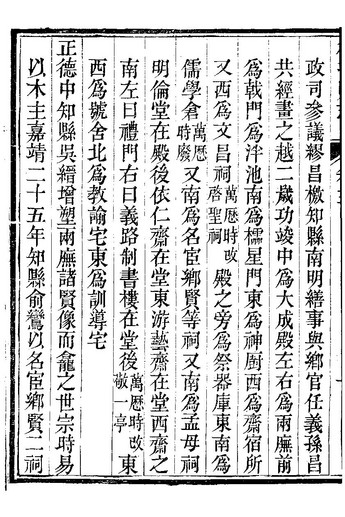 政司參議繆昌檄知縣南明繕事與鄉官任義孫昌
共經畫之越二歲功竣中為大成殿左右為兩廡前
為戟門為泮池南為櫺星門東為神厨西為齋宿所
又西為文昌祠萬厯時改啓聖祠殿之旁為祭器庫東南為
儒學倉萬厯時廢又南為名宦鄉賢等祠又南為孟母祠
明倫堂在殿後依仁齋在堂東游藝齋在堂西齋之
南左曰禮門右曰義路制書樓在堂後萬厯時改敬一亭東
西為號舍北為教諭宅東為訓導宅
正德中知縣吳縉增塑兩廡諸賢像而龕之世宗時易
以木主嘉靖二十五年知縣俞鸞以名宦鄉賢二祠